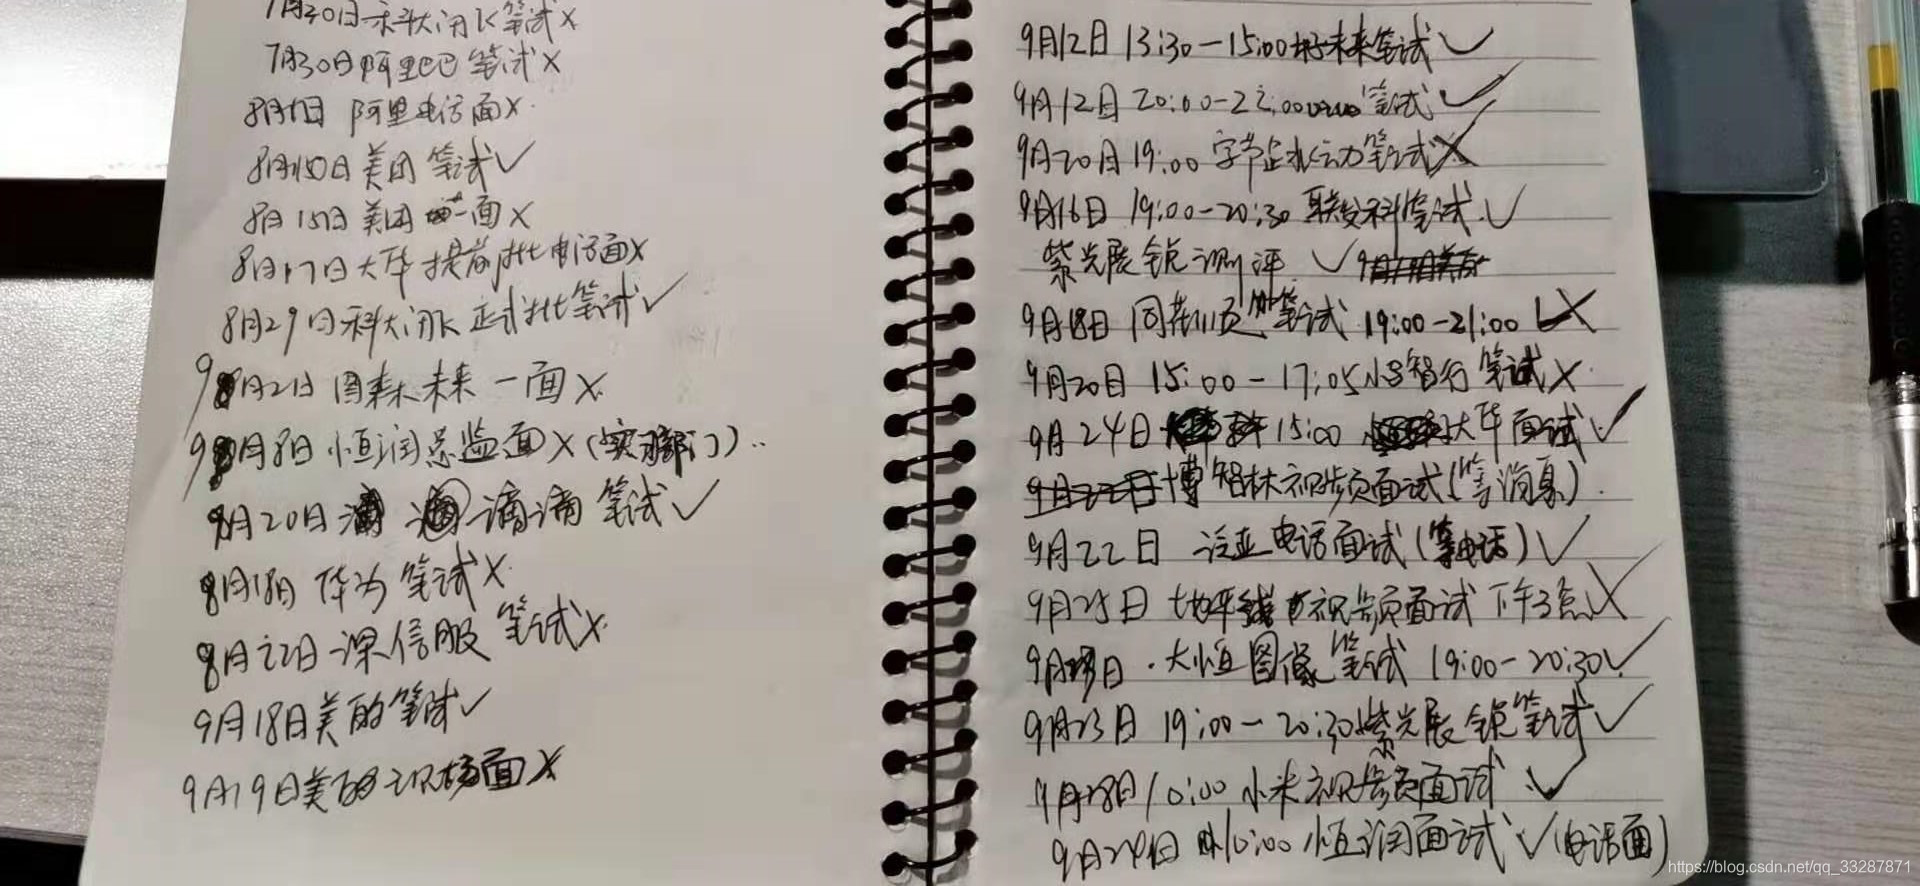 7月30日科大讯飞笔试×
7月30日阿里巴巴笔试×
8月1日 阿里电话面×
8月10日美团笔试✓
8月15日美团一面×
8月17日大华提前批电话面×
8月29日科大讯飞正式批笔试✓
9月2日 图森未来一面×
9月8日恒润总监面×(实习部门)..
9月20日 滴滴笔试✓
8月18日 华为笔试×
8月22日深信服笔试×
9月18日美的笔试✓
9月19日美的现场面×
9月12日 13:30-15:00好未来笔试✓
9月12日 20:00-22:00 笔试✓
9月20日 19:00 字节跳动笔试×
9月16日 19:00-20:30 联发科笔试✓
紫光展锐测评 ✓
9月18日 同花顺笔试 19:00-21:00 ×
9月20日 15:00-17:05 智行笔试×
9月24日 15:00 大华面试✓
博智林视频面试(等消息).
9月22日 电话面试(等电话)✓
9月25日 地平线视频面试 下午3点×
9月23日·大恒图像笔试 19:00-20:30✓
9月23日 19:00-20:30紫光展锐笔试✓
9月28日10:00 小米视频面试 ✓
10:00 恒润面试✓(电话面)
https://blog.csdn.net/qq_33287871